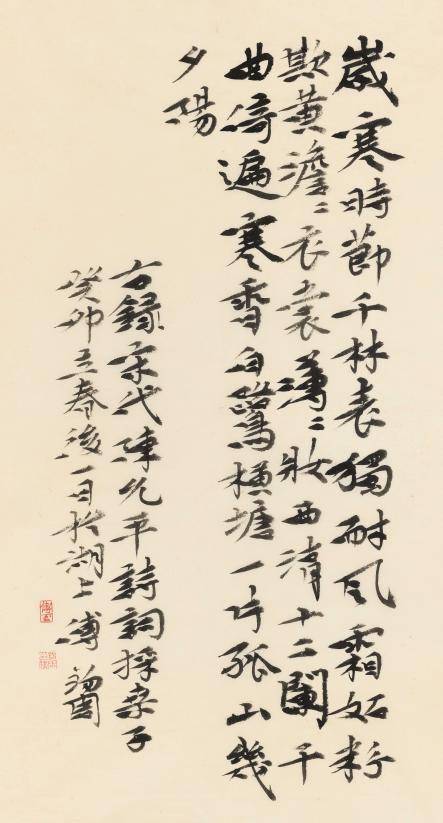 歲寒時節千林表獨耐風霜妬粉
欺黃澹〻衣裳薄〻妝西清十二闌干
曲倚遍寒香白鷺橫塘一片孤山幾
夕陽
右錄宋代陳允平詩詞採桑子
癸卯立春後一日於湖上傅